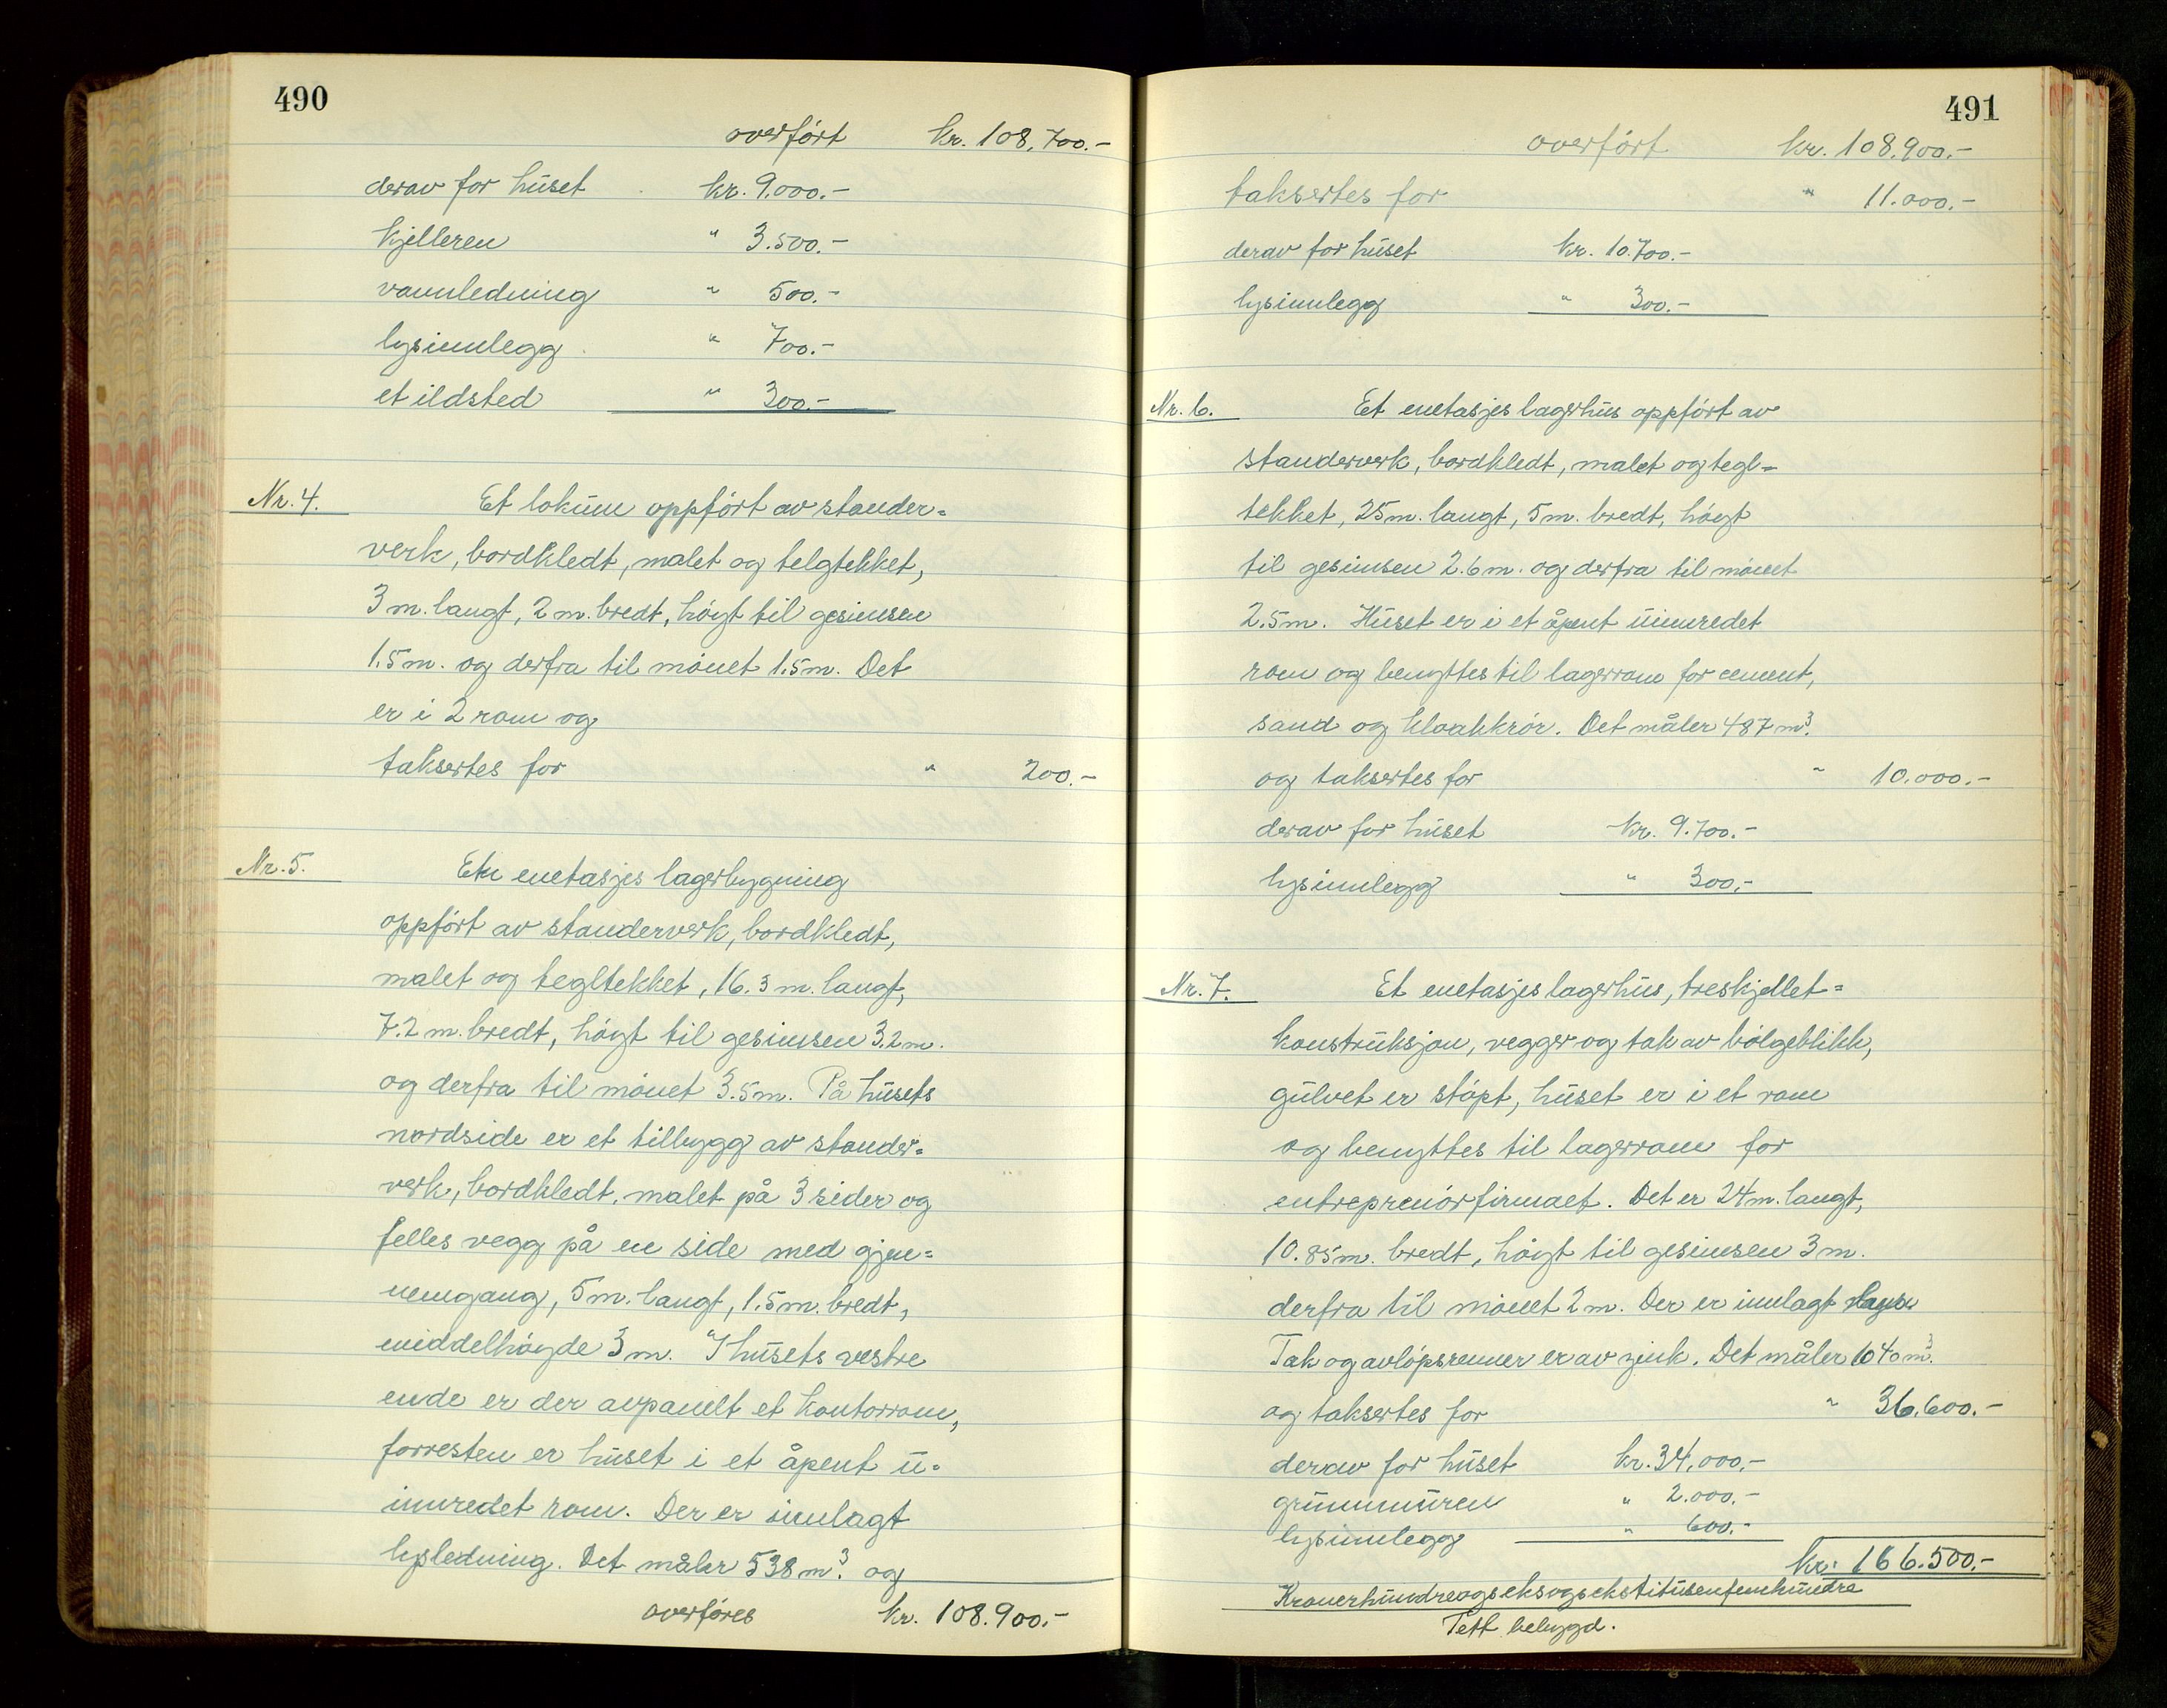 490
overført kr. 108.700.-
derav for huset kr. 9.000.-
kjelleren " 3.500.-
vannledning " 500.-
lysinnlegg " 700.-
et ildsted " 300.-
Nr. 4. Et lokum oppført av stander=
verk, bordkledt, malet og telgtekket,
3 m. langt, 2 m. bredt, høgt til gesimsen
1.5 m. og derfra til mønet 1.5 m. Det
er i 2 rom og
taksertes for " 200.-
Nr. 5. En enetasjes lagerbygning
oppført av standerverk, bordkledt,
malet og tegltekket, 16.3 m. langt,
7.2 m. bredt, høgt til gesimsen 3.2 m.
og derfra til mønet 3.5 m. På husets
nordside er et tilbygg av stander=
verk, bordkledt, malet på 3 sider og
felles vegg på en side med gjen=
nemgang, 5 m. langt, 1.5 m. bredt,
middelhøgde 3 m. I husets vestre
ende er der avpanelt et kontorrom,
forresten er huset i et åpent u=
innredet rom. Der er innlagt
lysledning. Det måler 538 m³. og
overføres kr. 108.900.-
491
overført kr. 108.900.-
taksertes for " 11.000.-
derav for huset kr. 10.700.-
lysinnlegg " 300.-
Nr. 6. Et enetasjes lagerhus oppført av
standerverk, bordkledt, malet og tegl=
tekket, 25 m. langt, 5 m. bredt, høgt
til gesimsen 2.6 m. og derfra til mønet
2.5 m. Huset er i et åpent uinnredet
rom og benyttes til lagerrom for cement,
sand og kloakkrør. Det måler 487 m³.
og taksertes for " 10.000.-
derav for huset kr. 9.700.-
lysinnlegg " 300.-
Nr. 7. Et enetasjes lagerhus, treskjellet=
konstruksjon, vegger og tak av bølgeblikk,
gulvet er støpt, huset er i et rom
og benyttes til lagerrom for
entreprenørfirmaet. Det er 24 m. langt,
10.85 m. bredt, høgt til gesimsen 3 m.
derfra til mønet 2 m. Der er innlagt
Tak og avløpsrenner er av zink. Det måler 1040 m³.
og taksertes for " 36.600.-
derav for huset kr. 34.000.-
grunnmuren " 2.000.-
lysinnlegg " 600.-
kr. 166.500.-
Kronerhundreogseksogsekstitusenfemhundre
Tett bebygd.